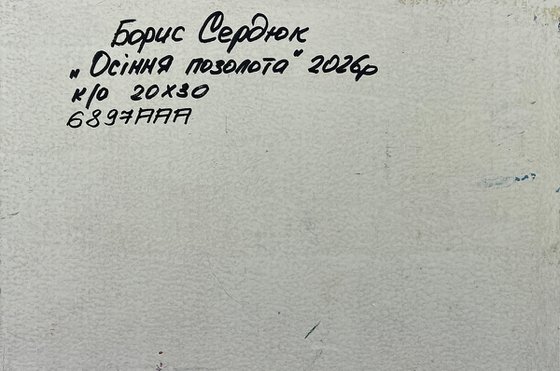 Борис Сердюк
„Осіння позолота" 2026р
к/о 20х30
6897ААА